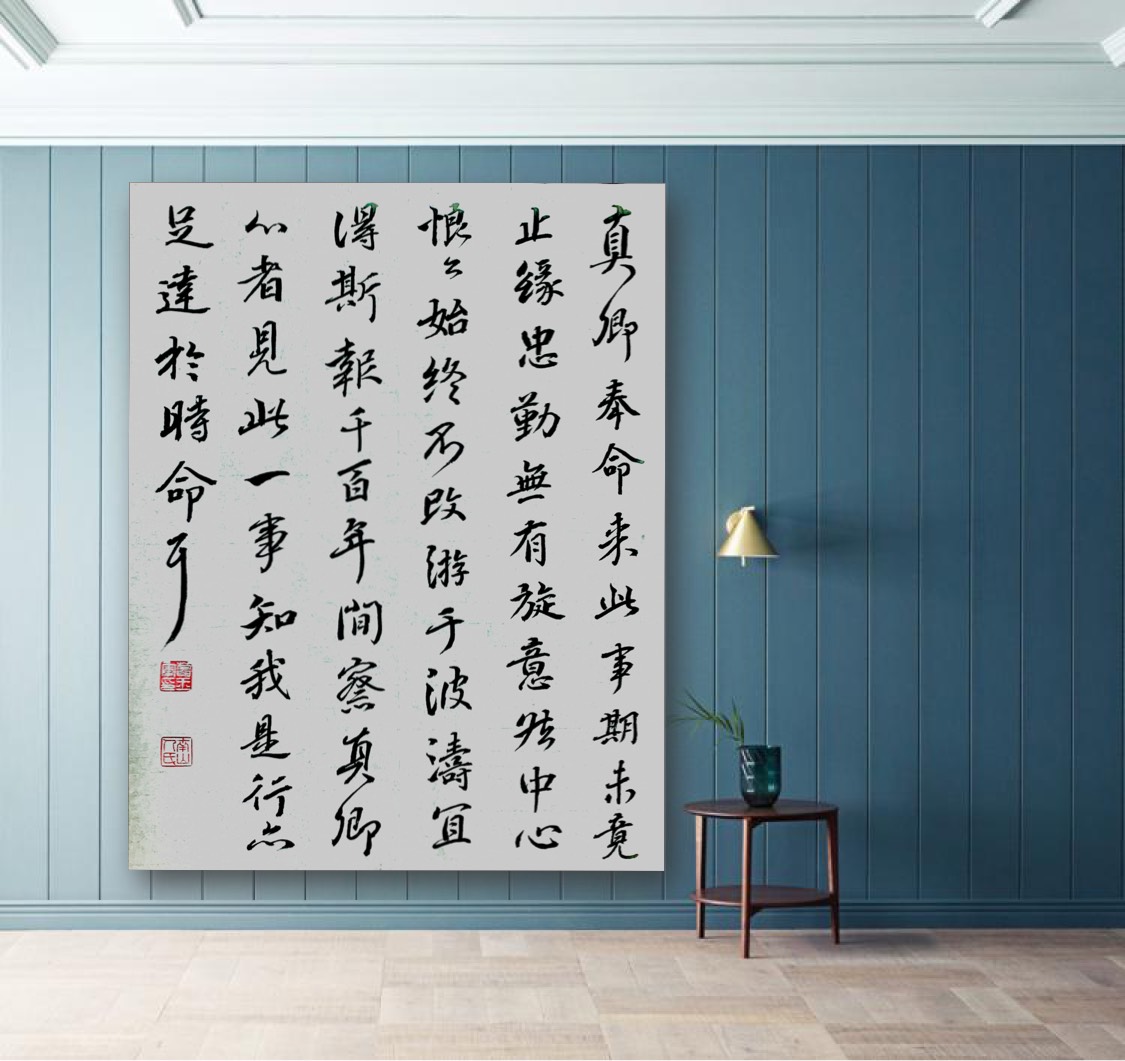 真卿奉命来此事期未竟
止緣忠勤無有旋意然中心
恨々始終不改游于波濤宜
得斯報千百年間察真卿
心者見此一事知我是行亦
足達於時命耳
南山人氏